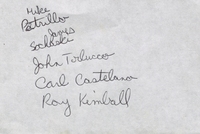 Mike
Petrillo
James
John Terlucco
Carl Castelano
Ray Kimball